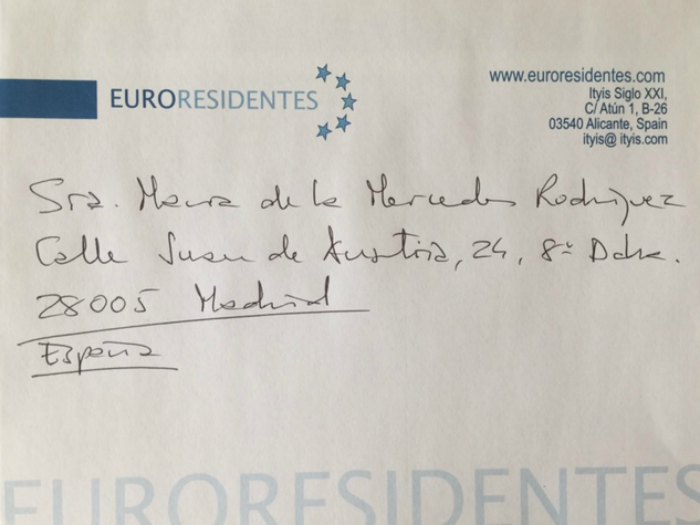 EURORESIDENTES
www.euroresidentes.com
Ityis Siglo XXI,
C/ Atún 1, B-26
03540 Alicante, Spain
ityis@ ityis.com
Sra. Maria de la Mercedes Rodriguez
Calle Juan de Austria, 24, 8º Dcha.
28005 Madrid
España
EURORESIDENTES